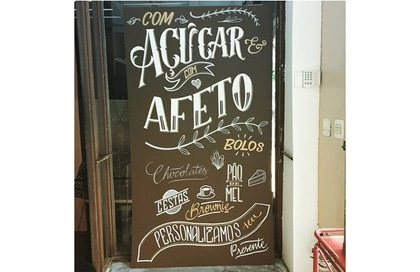 COM
AÇÚCAR &
COM
AFETO
BOLOS
Chocolates
PÃO
DE
MEL
CESTAS
Brownie
PERSONALIZAMOS seu
Presente